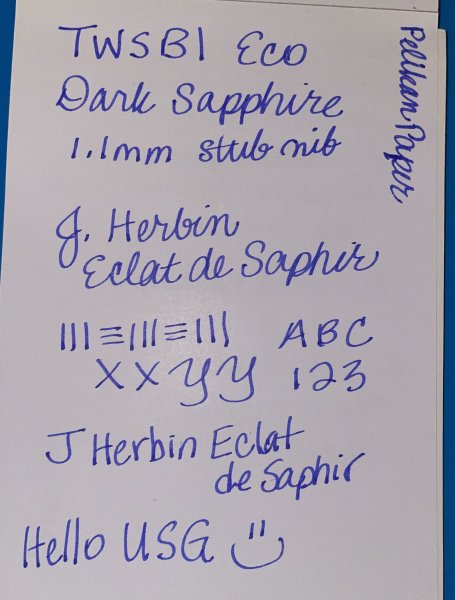 TWSBI Eco
Dark Sapphire
1.1mm stub nib
Pelikan Paper
J. Herbin
Eclat de Saphir
||| ≡ ||| ≡ ||| ABC
X X Y Y 123
J Herbin Eclat
de Saphir
Hello USG